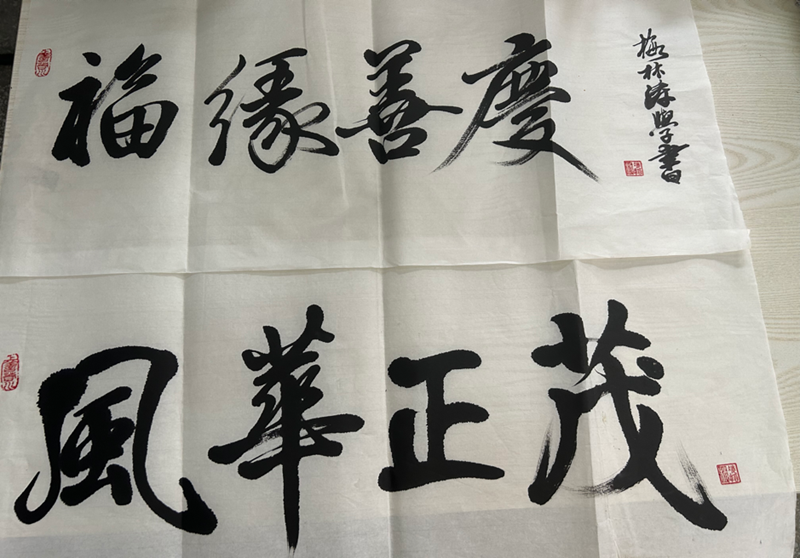 福缘善慶
梅林學書
風華正茂